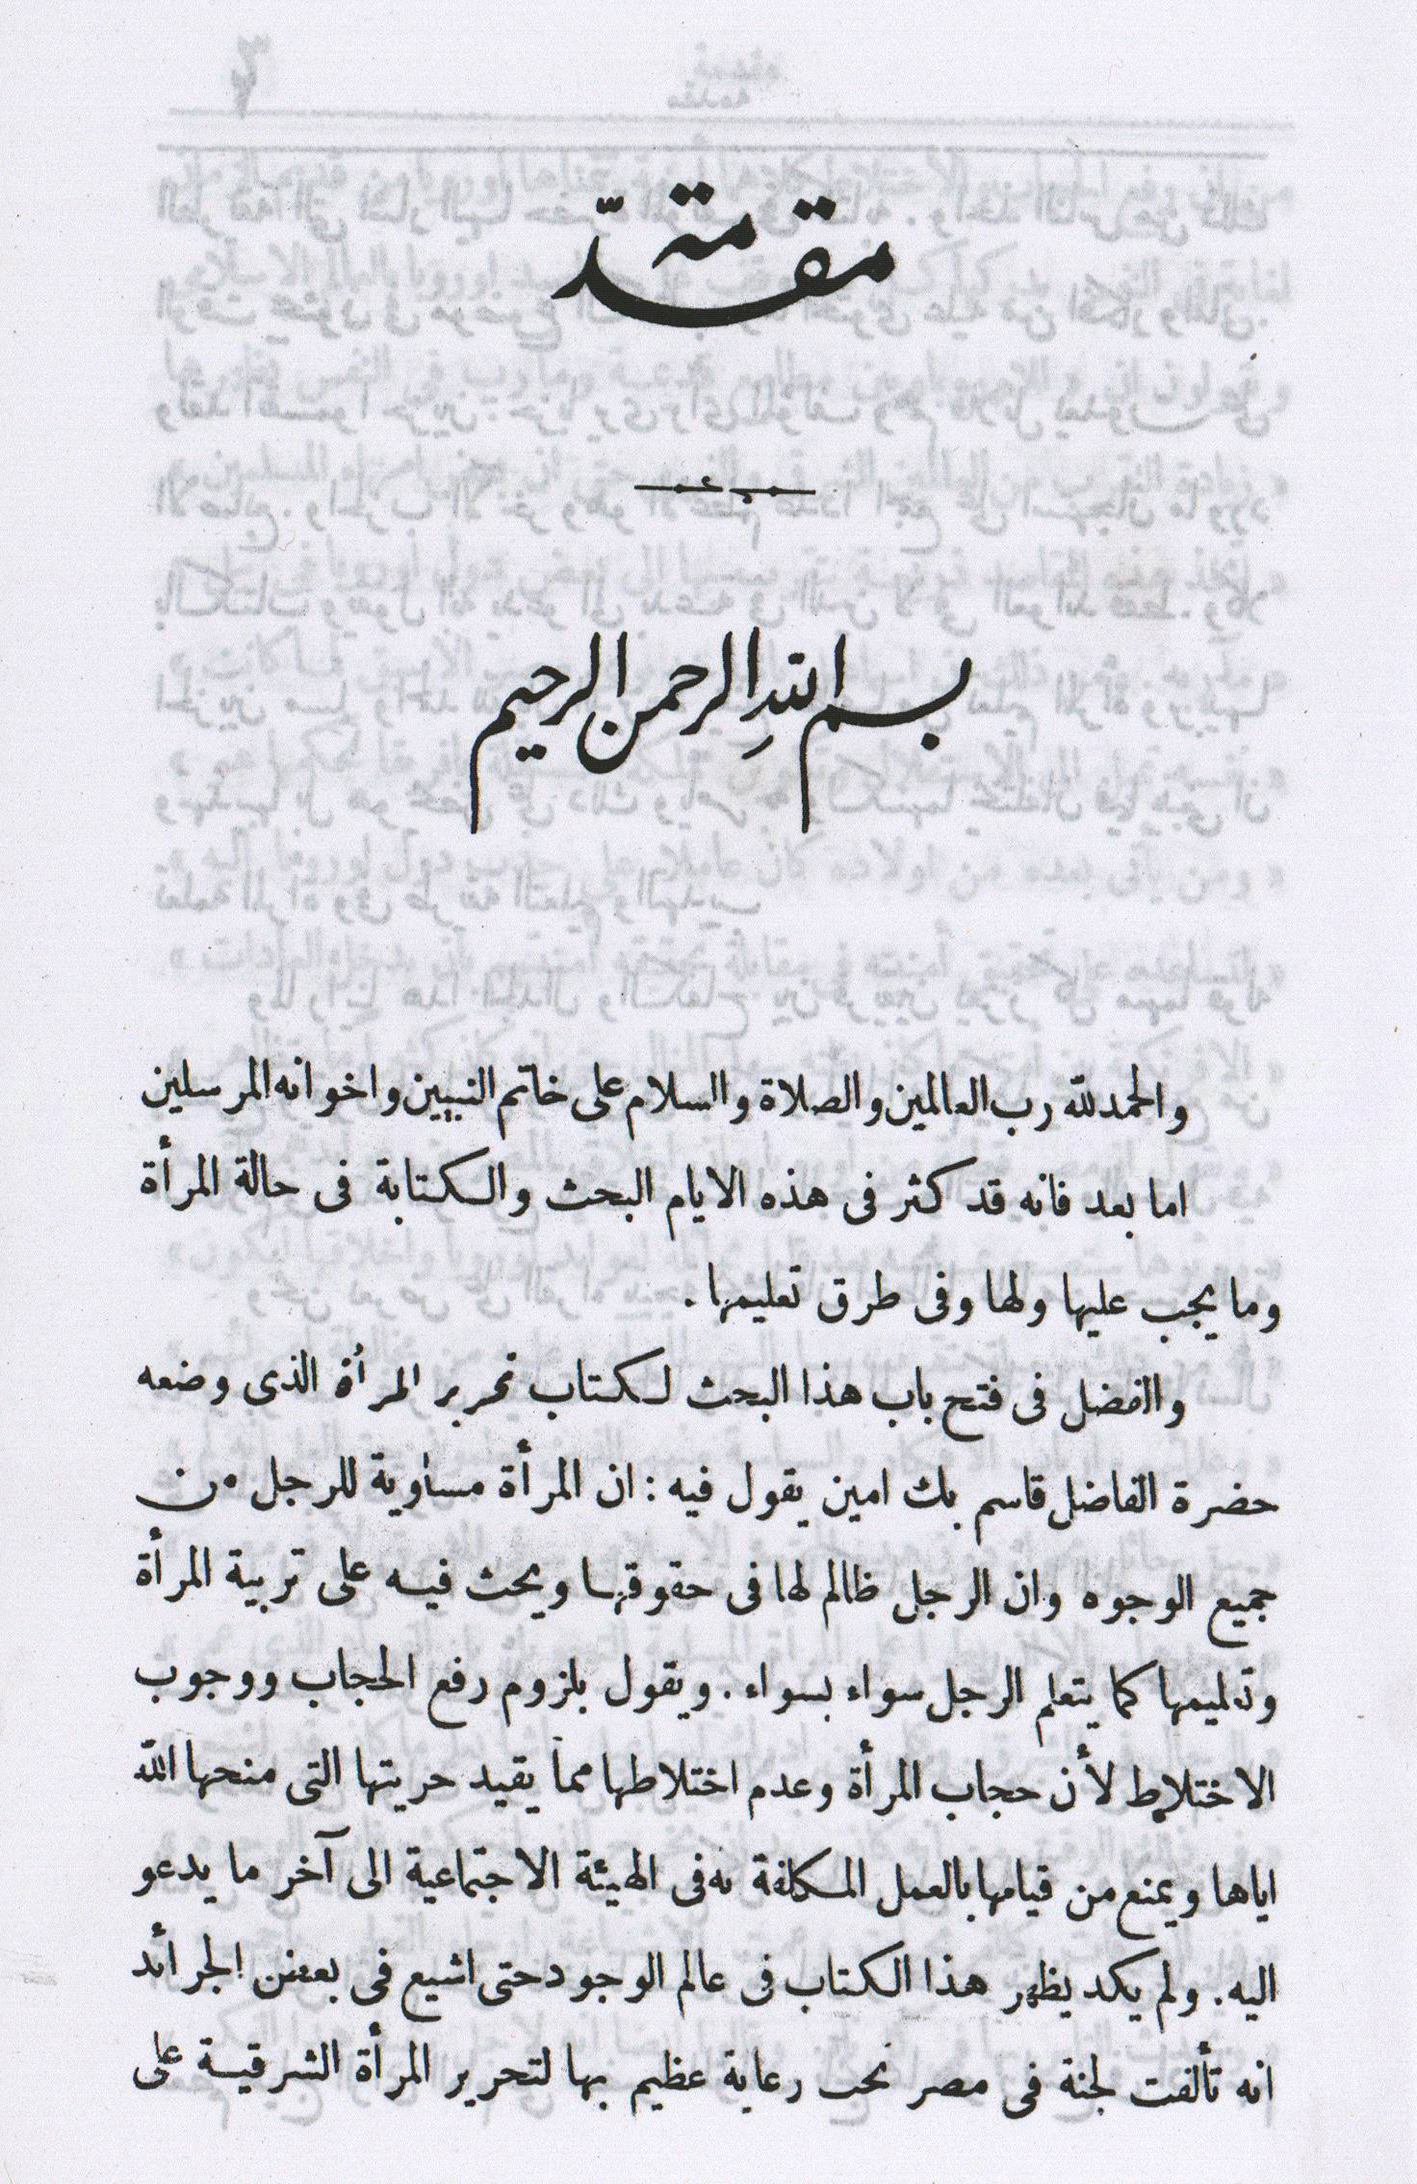 مقدمة
بسم الله الرحمن الرحيم
والحمد لله رب العالمين والصلاة والسلام على خاتم النبيين واخوانه المرسلين
اما بعد فانه قد كثر فى هذه الايام البحث والكتابة فى حالة المرأة
وما يجب عليها ولها وفى طرق تعليمها .
والفضل فى فتح باب هذا البحث لكتاب تحرير المرأة الذى وضعه
حضرة الفاضل قاسم بك امين يقول فيه : ان المرأة مساوية للرجل من
جميع الوجوه وان الرجل ظالم لها فى حقوقها ويحث فيه على تربية المرأة
وتعليمها كما يتعلم الرجل سواء بسواء . ويقول بلزوم رفع الحجاب ووجوب
الاختلاط لأن حجاب المرأة وعدم اختلاطها مما يقيد حريتها التى منحها الله
اياها ويمنع من قيامها بالعمل المكلفة به فى الهيئة الاجتماعية الى آخر ما يدعو
اليه . ولم يكد يظهر هذا الكتاب فى عالم الوجود حتى اشيع فى بعض الجرائد
انه تألفت لجنة فى مصر تحت رعاية عظيم بها لتحرير المرأة الشرقية على